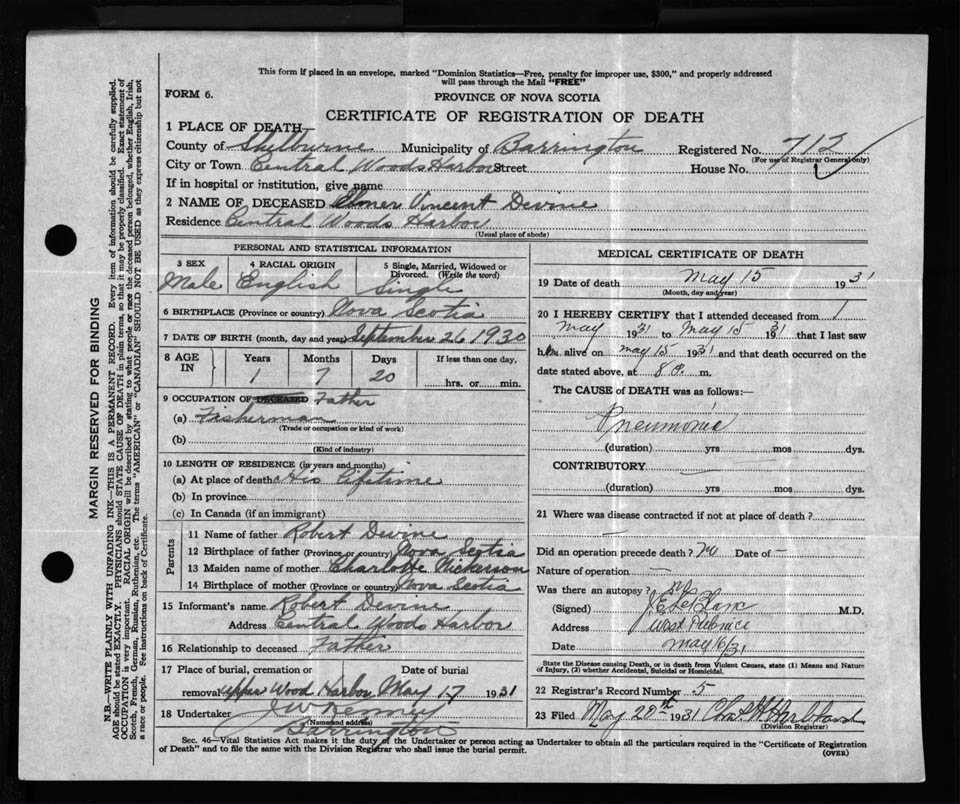 This form if placed in an envelope, marked "Dominion Statistics—Free, penalty for improper use, $300," and properly addressed
will pass through the Mail "FREE"
FORM 6.
PROVINCE OF NOVA SCOTIA
CERTIFICATE OF REGISTRATION OF DEATH
1 PLACE OF DEATH—
County of Shelburne Municipality of Barrington Registered No.
(For use of Registrar General only)
City or Town Central Woods Harbor Street House No.
If in hospital or institution, give name
2 NAME OF DECEASED Elmer Vincent Devine
Residence Central Woods Harbor
(Usual place of abode)
PERSONAL AND STATISTICAL INFORMATION
3 SEX 4 RACIAL ORIGIN 5 Single, Married, Widowed or Divorced. (Write the word)
Male English Single
6 BIRTHPLACE (Province or country) Nova Scotia
7 DATE OF BIRTH (month, day and year) September 26 1930
8 AGE IN Years Months Days If less than one day,
1 7 20 hrs. or min.
9 OCCUPATION OF DECEASED Father
(a) Fisherman
(Trade or occupation or kind of work)
(b)
(Kind of industry)
10 LENGTH OF RESIDENCE (in years and months)
(a) At place of death His Lifetime
(b) In province
(c) In Canada (if an immigrant)
Parents
11 Name of father Robert Devine
12 Birthplace of father (Province or country) Nova Scotia
13 Maiden name of mother Charlotte Nickerson
14 Birthplace of mother (Province or country) Nova Scotia
15 Informant's name Robert Devine
Address Central Woods Harbor
16 Relationship to deceased Father
17 Place of burial, cremation or Date of burial
removal Upper Wood Harbor May 17 1931
18 Undertaker
(Name and address)
Barrington
MEDICAL CERTIFICATE OF DEATH
19 Date of death May 15 1931
(Month, day and year)
20 I HEREBY CERTIFY that I attended deceased from 1
May 1931 to May 15 1931 that I last saw
him alive on May 15 1931 and that death occurred on the
date stated above, at 8 m.
The CAUSE of DEATH was as follows:—
Pneumonia
(duration) yrs mos dys.
CONTRIBUTORY
(duration) yrs mos dys.
21 Where was disease contracted if not at place of death?
Did an operation precede death? No Date of –
Nature of operation —
Was there an autopsy? No
(Signed) LeBlanc M.D.
Address West Pubnico
Date May 16/31
State the Disease causing Death, or in death from Violent Causes, state (1) Means and Nature
of Injury, (2) whether Accidental, Suicidal or Homicidal.
22 Registrar's Record Number 5
23 Filed May 20th 1931
(Division Registrar)
Sec. 46—Vital Statistics Act makes it the duty of the Undertaker or person acting as Undertaker to obtain all the particulars required in the "Certificate of Registration
of Death" and to file the same with the Division Registrar who shall issue the burial permit.
(OVER)
MARGIN RESERVED FOR BINDING
N.B.—WRITE PLAINLY WITH UNFADING INK—THIS IS A PERMANENT RECORD. Every item of information should be carefully supplied.
AGE should be stated EXACTLY. PHYSICIANS should STATE CAUSE OF DEATH in plain terms, so that it may be properly classified. Exact statement of
OCCUPATION is very important. RACIAL ORIGIN will be described by stating to what people or race the deceased person belonged, whether English, Irish,
Scotch, French, German, Russian, Ruthenian, etc. The terms "AMERICAN" or "CANADIAN" SHOULD NOT BE USED as they express citizenship but not
a race or people. See instructions on back of Certificate.